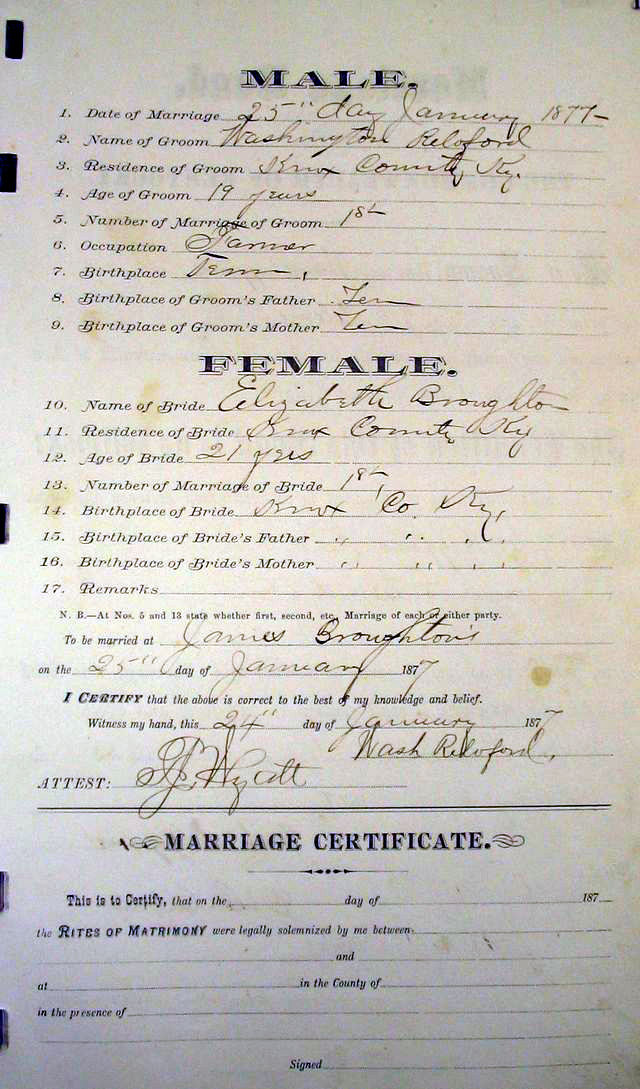 MALE.
1. Date of Marriage 25" day January 1877-
2. Name of Groom Washington Reloford
3. Residence of Groom Knox County, Ky.
4. Age of Groom 19 years
5. Number of Marriage of Groom 1st
6. Occupation Farmer
7. Birthplace Tenn,
8. Birthplace of Groom's Father Ten
9. Birthplace of Groom's Mother Ten
FEMALE.
10. Name of Bride Elizabeth Broughton
11. Residence of Bride Knox County Ky
12. Age of Bride 21 yers
13. Number of Marriage of Bride 1st,
14. Birthplace of Bride Knox Co. Ky,
15. Birthplace of Bride's Father " " "
16. Birthplace of Bride's Mother " " "
17. Remarks
N. B.—At Nos. 5 and 13 state whether first, second, etc., Marriage of each or either party.
To be married at James Broughton's
on the 25" day of January 1877
I CERTIFY that the above is correct to the best of my knowledge and belief.
Witness my hand, this 24" day of January 1877
Wash Reloford,
ATTEST: Hyatt
MARRIAGE CERTIFICATE.
This is to Certify, that on the day of 187
the RITES OF MATRIMONY were legally solemnized by me between
and
at in the County of
in the presence of
Signed